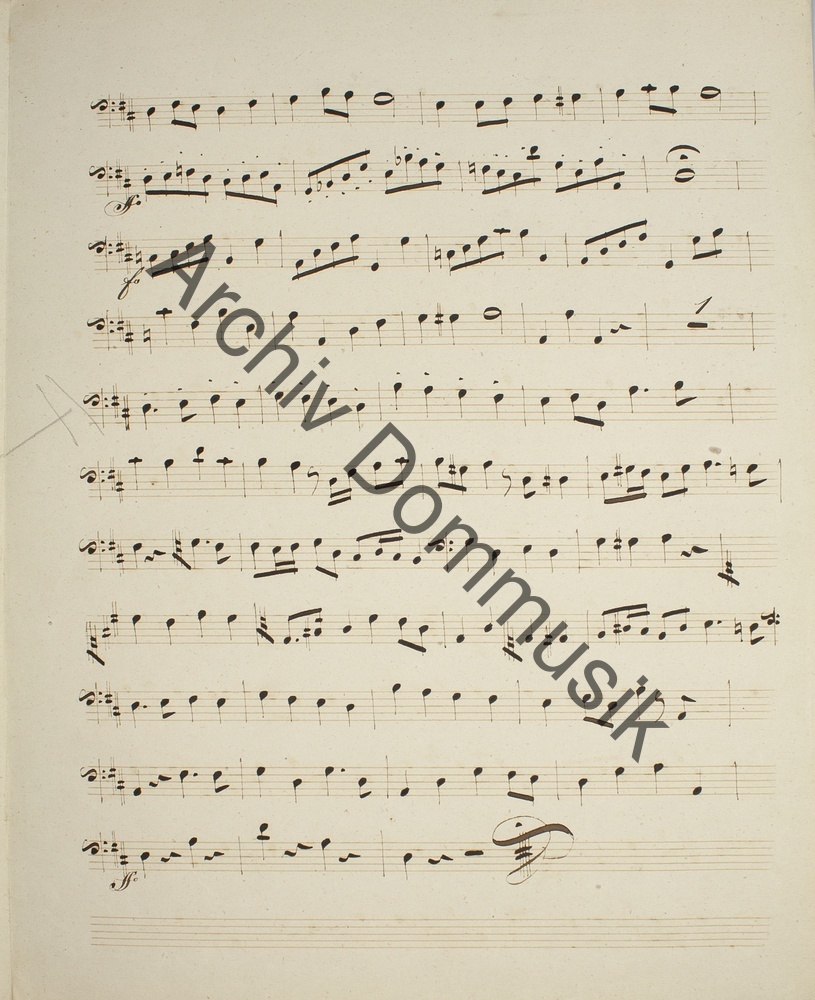 ff:
f:
1
ff:
Archiv Dommusik